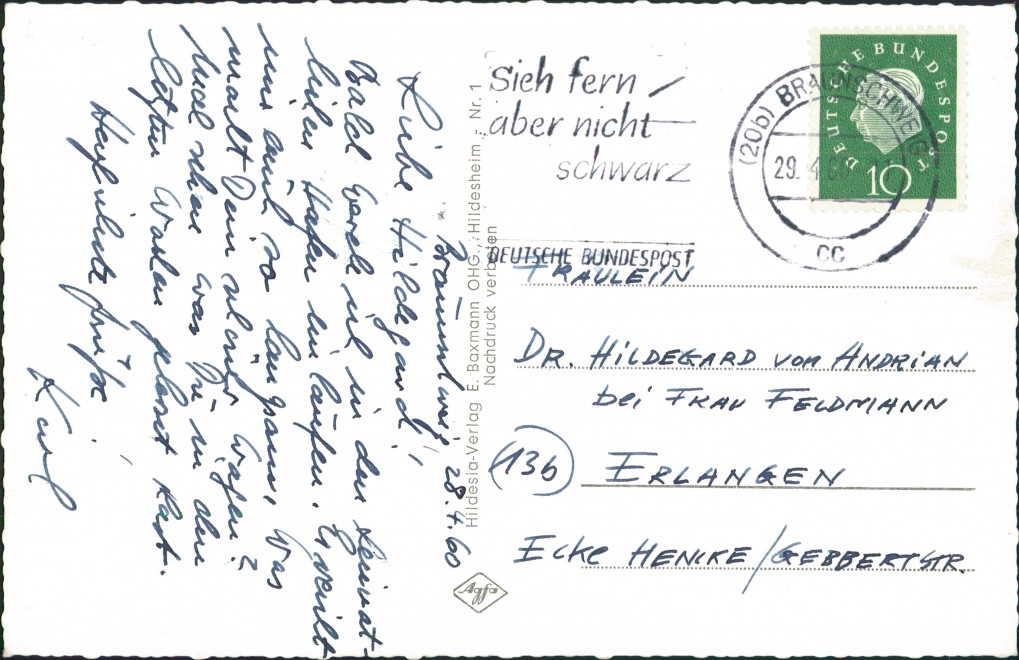 Braunschweig, 28.4.60
Liebe Hildegard!
Bald werde ich in den Heimat-
hafen einlaufen. Es weilt
mir auch so langsam. Was
macht Dein schöner Wagen?
Und schon was Du in den
letzten Wochen gelesst hast.
Herzlichste Grüße
Karl
Hildesia-Verlag E. Baxmann OHG., Hildesheim - Nr. 1
Nachdruck verboten
Agfa
Sieh fern
aber nicht
schwarz
DEUTSCHE BUNDESPOST
(20b) BRAUNSCHWEIG
29.4.60
cc
DEUTSCHE BUNDESPOST
10
FRÄULEIN
DR. HILDEGARD VON ANDRIAN
bei FRAU FELDMANN
(13b) ERLANGEN
ECKE HENKE/GEBBERTSTR.